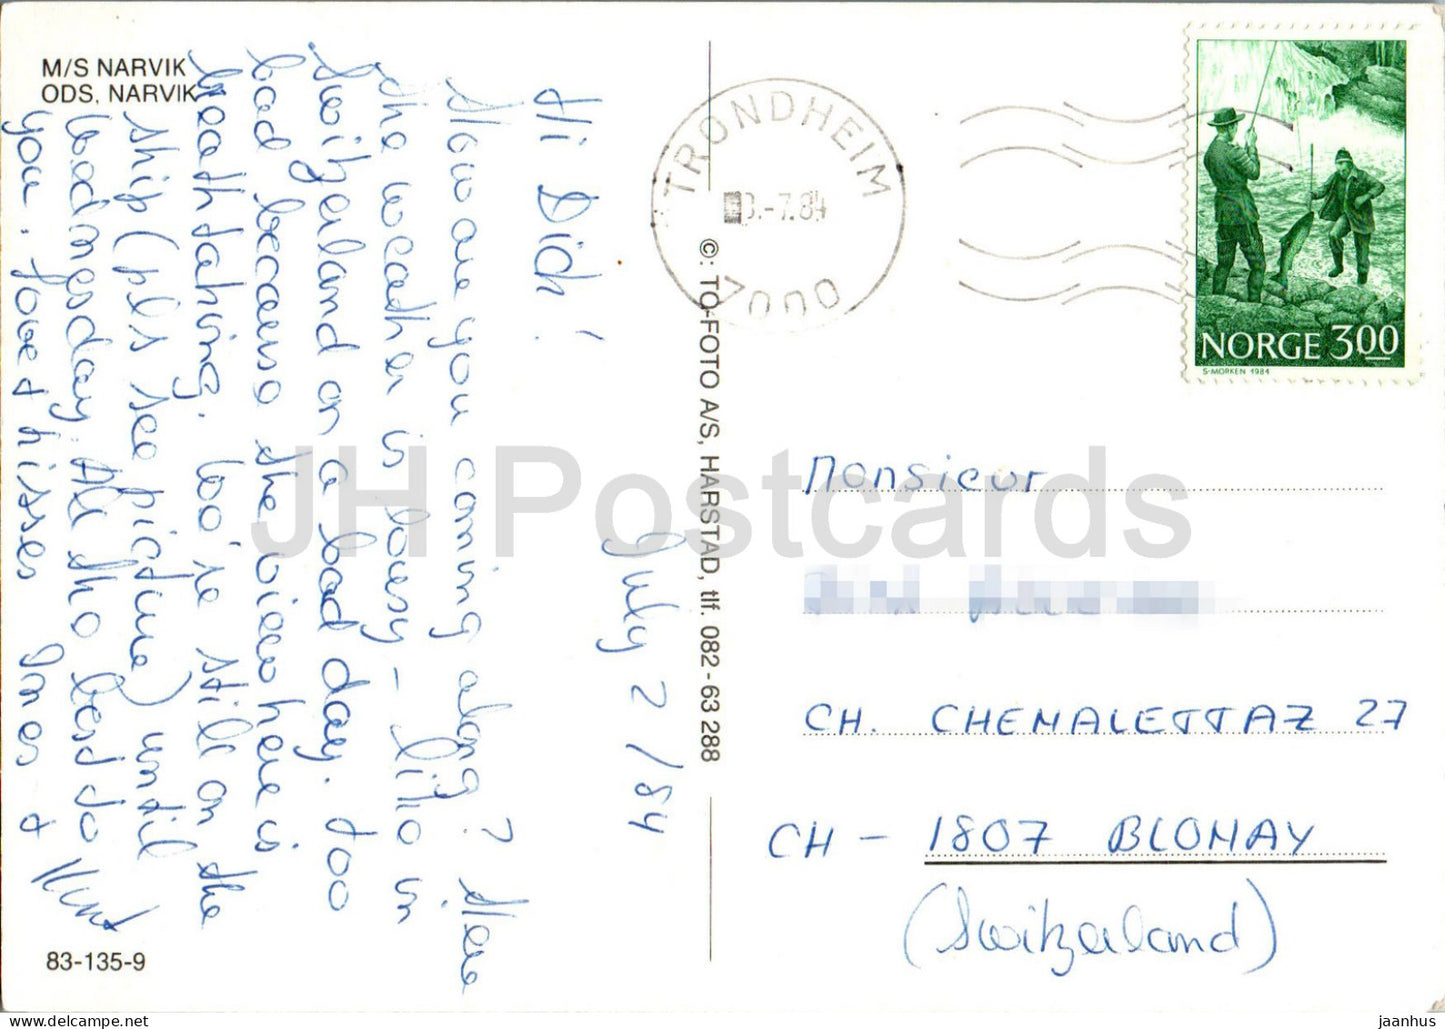 M/S NARVIK
ODS, NARVIK
July 2/84
Hi Dich!
How are you coming along? Here
the weather is lousy – like in
Switzerland on a bad day. too
bad because the view here is
breathtaking. We're still on the
ship (pls see picture) until
Wednesday. All the best to
you. Love & kisses Ines &
Kurt
83-135-9
©: TO-FOTO A/S, HARSTAD, tlf. 082 - 63 288
TRONDHEIM
3.-7.84
7000
NORGE 3.00
S·MORKEN 1984
Monsieur
CH. CHEMALETTAZ 27
CH - 1807 BLONAY
(Switzerland)
JH Postcards
jaanhus